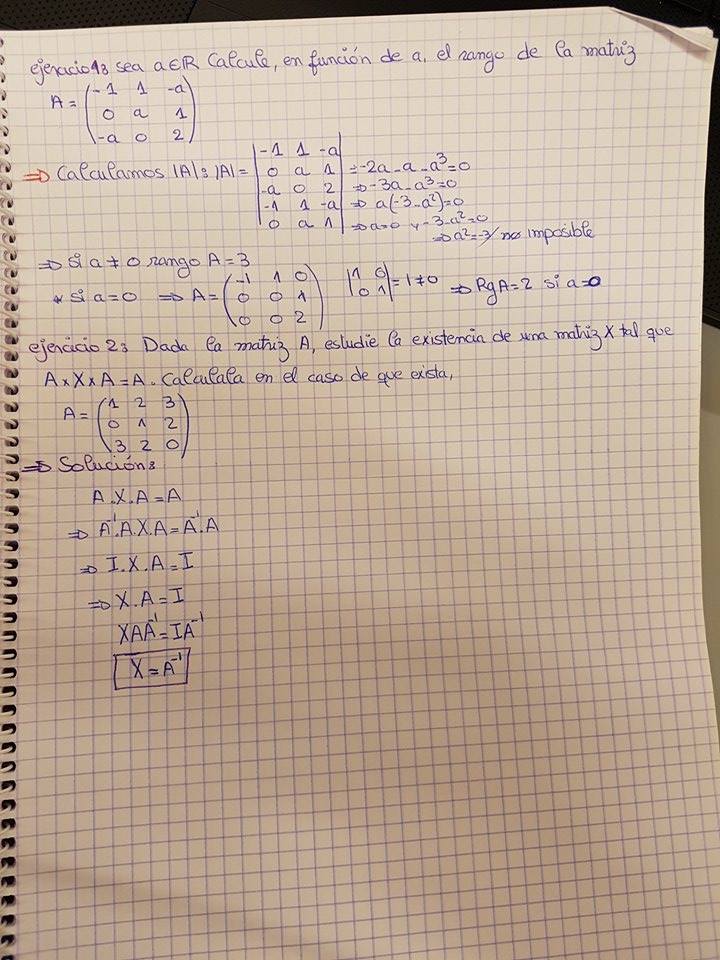 ejercicio 1: sea a∈ℝ Calcule, en función de a, el rango de la matriz
A = (-1 1 -a
0 a 1
-a 0 2)
⇒ Calculamos |A|: |A| = |-1 1 -a
0 a 1
-a 0 2
-1 1 -a
0 a 1| = -2a - a - a³ = 0
⇒ -3a - a³ = 0
⇒ a(-3 - a²) = 0
⇒ a=0 y -3 - a² = 0
⇒ a² = -3 / no imposible
⇒ si a ≠ 0 rango A = 3
* si a = 0 ⇒ A = (-1 1 0
0 0 1
0 0 2) |1 0
0 1| = 1 ≠ 0 ⇒ Rg A = 2 si a = 0
ejercicio 2: Dada la matriz A, estudie la existencia de una matriz X tal que
A × X × A = A. Calculala en el caso de que exista,
A = (1 2 3
0 1 2
3 2 0)
⇒ Solución:
A.X.A = A
⇒ A⁻¹.A.X.A = A⁻¹.A
⇒ I.X.A = I
⇒ X.A = I
XAA⁻¹ = IA⁻¹
X = A⁻¹